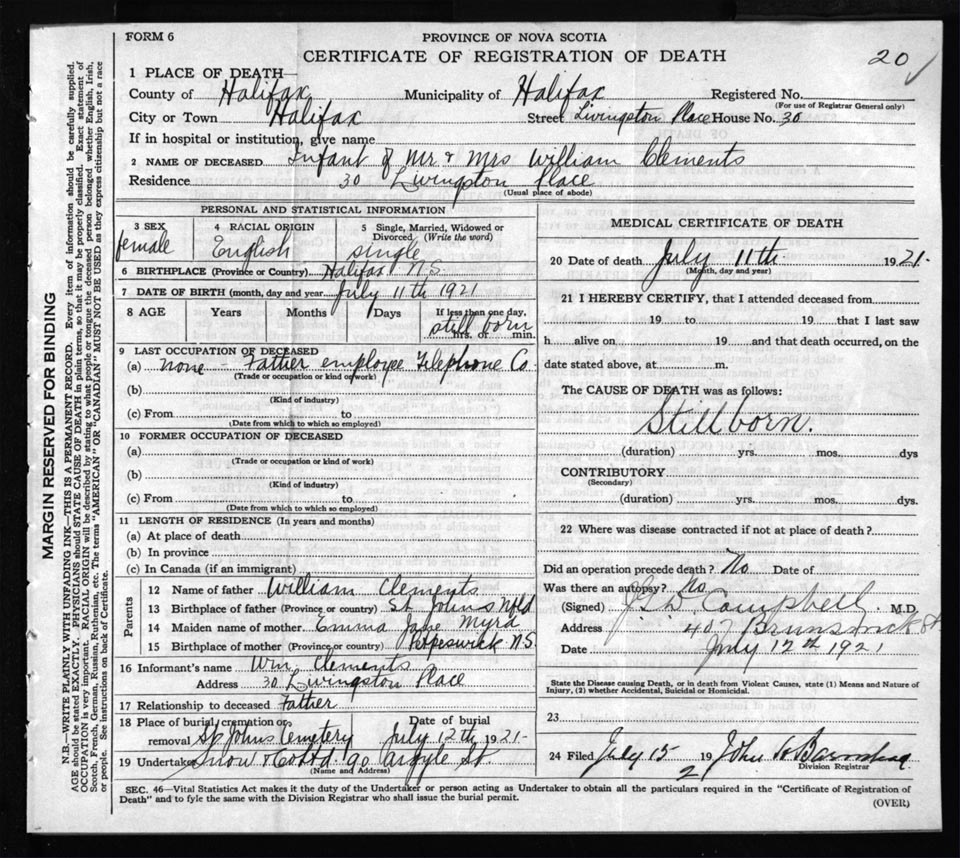 FORM 6
PROVINCE OF NOVA SCOTIA
CERTIFICATE OF REGISTRATION OF DEATH
20
1 PLACE OF DEATH—
County of Halifax Municipality of Halifax Registered No.
(For use of Registrar General only)
City or Town Halifax Street Livingston Place House No. 30
If in hospital or institution, give name
2 NAME OF DECEASED Infant of Mr & Mrs William Clements
Residence 30 Livingston Place
(Usual place of abode)
PERSONAL AND STATISTICAL INFORMATION
3 SEX 4 RACIAL ORIGIN 5 Single, Married, Widowed or Divorced (Write the word)
female English single
6 BIRTHPLACE (Province or Country) Halifax N.S.
7 DATE OF BIRTH (month, day and year July 11th 1921
8 AGE Years Months Days If less than one day,
still born
hrs. or min.
9 LAST OCCUPATION OF DECEASED
(a) none Father employee Telephone Co.
(Trade or occupation or kind of work)
(b)
(Kind of industry)
(c) From to
(Date from which to which so employed)
10 FORMER OCCUPATION OF DECEASED
(a)
(Trade or occupation or kind of work)
(b)
(Kind of industry)
(c) From to
(Date from which to which so employed)
11 LENGTH OF RESIDENCE (In years and months)
(a) At place of death
(b) In province
(c) In Canada (if an immigrant)
Parents
12 Name of father William Clements
13 Birthplace of father (Province or country) St Johns Nfld
14 Maiden name of mother Emma Jane Myra
15 Birthplace of mother (Province or country) Petpeswick N.S.
16 Informant's name Wm. Clements
Address 30 Livingston Place
17 Relationship to deceased Father
18 Place of burial, cremation or removal St Johns Cemetery Date of burial July 12th 1921.
19 Undertaker Snow & Co Ltd. 90 Argyle St.
(Name and Address)
MEDICAL CERTIFICATE OF DEATH
20 Date of death July 11th 1921.
(Month, day and year)
21 I HEREBY CERTIFY, that I attended deceased from
19 to 19 that I last saw
h alive on 19 and that death occurred, on the
date stated above, at m.
The CAUSE OF DEATH was as follows:
Stillborn.
(duration) yrs. mos. dys
CONTRIBUTORY
(Secondary)
(duration) yrs. mos. dys.
22 Where was disease contracted if not at place of death?
Did an operation precede death? No Date of
Was there an autopsy? No
(Signed) Campbell M.D.
Address 407 Brunswick St
Date July 12th 1921
State the Disease causing Death, or in death from Violent Causes, state (1) Means and Nature of
Injury, (2) whether Accidental, Suicidal or Homicidal.
23
24 Filed July 15 192 John
Division Registrar
SEC. 46—Vital Statistics Act makes it the duty of the Undertaker or person acting as Undertaker to obtain all the particulars required in the "Certificate of Registration of
Death" and to fyle the same with the Division Registrar who shall issue the burial permit.
(OVER)
MARGIN RESERVED FOR BINDING
N.B.—WRITE PLAINLY WITH UNFADING INK—THIS IS A PERMANENT RECORD. Every item of information should be carefully supplied.
AGE should be stated EXACTLY. PHYSICIANS should STATE CAUSE OF DEATH in plain terms, so that it may be properly classified. Exact statement of
OCCUPATION is very important. RACIAL ORIGIN will be described by stating to what people or tongue the deceased person belonged whether English, Irish,
Scotch, French, German, Russian, Ruthenian, etc. The terms "AMERICAN" OR "CANADIAN" MUST NOT BE USED as they express citizenship but not a race
or people. See instructions on back of Certificate.